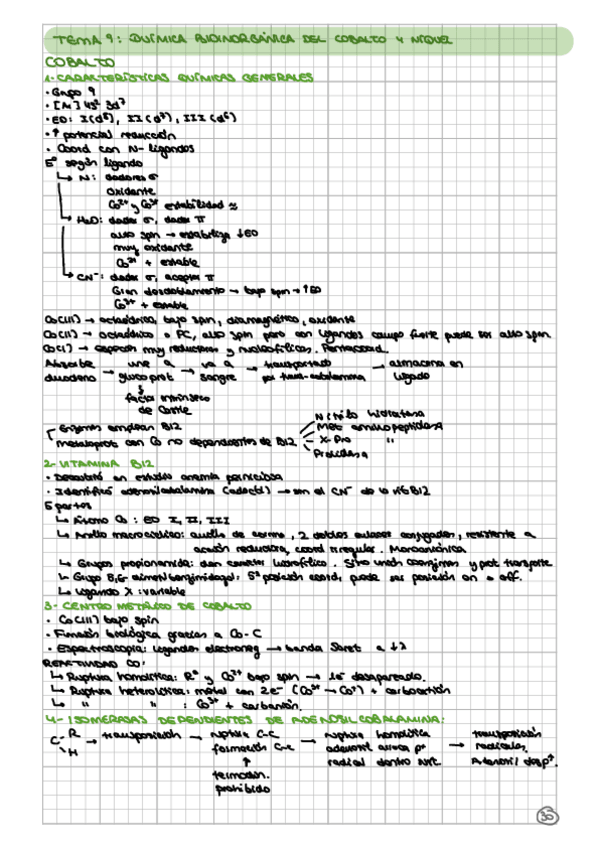 TEMA 9: QUÍMICA BIOINORGÁNICA DEL COBALTO Y NÍQUEL
COBALTO
1- CARACTERÍSTICAS QUÍMICAS GENERALES
· Grupo 9
· [Ar] 4s² 3d⁷
· EO: I(d⁸), II(d⁷), III(d⁶)
· ↑ potencial reducción
· Coord con N-ligandos
Eº según ligando
↳ N: dadores σ
oxidante
Co²⁺ y Co³⁺ estabilidad ≈
↳ H₂O: dador σ, dador π
alto spin → estabiliza ↓EO
muy oxidante
Co²⁺ + estable
↳ CN⁻: dador σ, aceptor π
Gran desdoblamiento → bajo spin → ↑EO
Co³⁺ + estable
Co(III) → octaédrico, bajo spin, diamagnético, oxidante
Co(II) → octaédrico o PC, alto spin pero con ligandos campo fuerte puede ser alto spin
Co(I) → especies muy reductoras y nucleofílicas. Pentacoord.
Absorbe duodeno → une a glucoprot → va a sangre → transportado por trans-cobalamina → almacena en hígado
↓
factor intrínseco
de Castle
Enzimas emplean B12
metaloprot con Co no dependientes de B12
Nitrilo hidratasa
Met aminopeptidasa
X-Pro "
Prolidasa
2- VITAMINA B12
· Descubrió en estudio anemia perniciosa
· Identificó adenosilcobalamina (adocbl) → sin el CN⁻ de la vit B12
5 partes
↳ Átomo Co: EO I, II, III
↳ Anillo macrocíclico: anillo de corrina, 2 dobles enlaces conjugados, resistente a
acción reductora, coord irregular. Monoaniónica
↳ Grupos propionamida: dan carácter hidrofílico. Sitio unión coenzimas y prot transporte
↳ Grupo 5,6-dimetilbenzimidazol: 5ª posición coord, puede ser posición on o off.
↳ Ligando X: variable
3- CENTRO METÁLICO DE COBALTO
· Co(III) bajo spin
· Función biológica gracias a Co-C
· Espectroscopía: ligandos electroneg → banda Soret a ↓λ
REACTIVIDAD CO:
↳ Ruptura homolítica: R° y Co²⁺ bajo spin → 1e⁻ desapareado.
↳ Ruptura heterolítica: metal con 2e⁻ (Co³⁺ → Co⁺) + carbocatión
↳ " " : Co³⁺ + carbanión.
4- ISOMERASAS DEPENDIENTES DE ADENOSILCOBALAMINA:
C-R H → transposición → ruptura C-C formación C-C → ruptura homolítica → transposición radicales,
↑
termodin.
prohibido
35